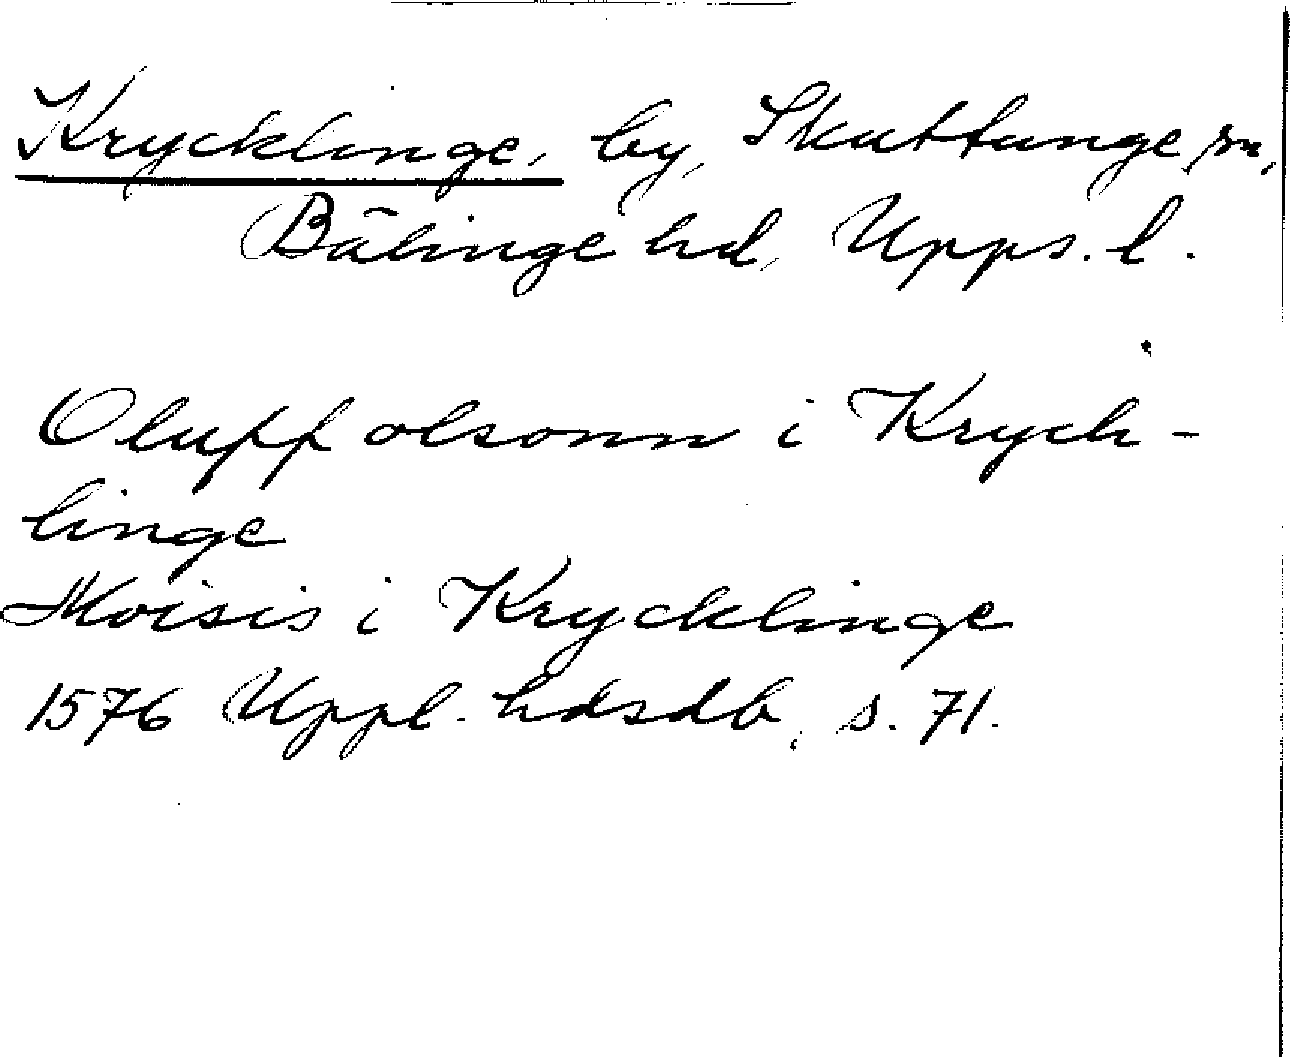 Krycklinge, by, Skuttunge sn,
Bälinge hd, Upps. l.
Olupf olsonn i Kryck-
linge
Moisis i Krycklinge
1576 Uppl. hdsdb, s. 71.